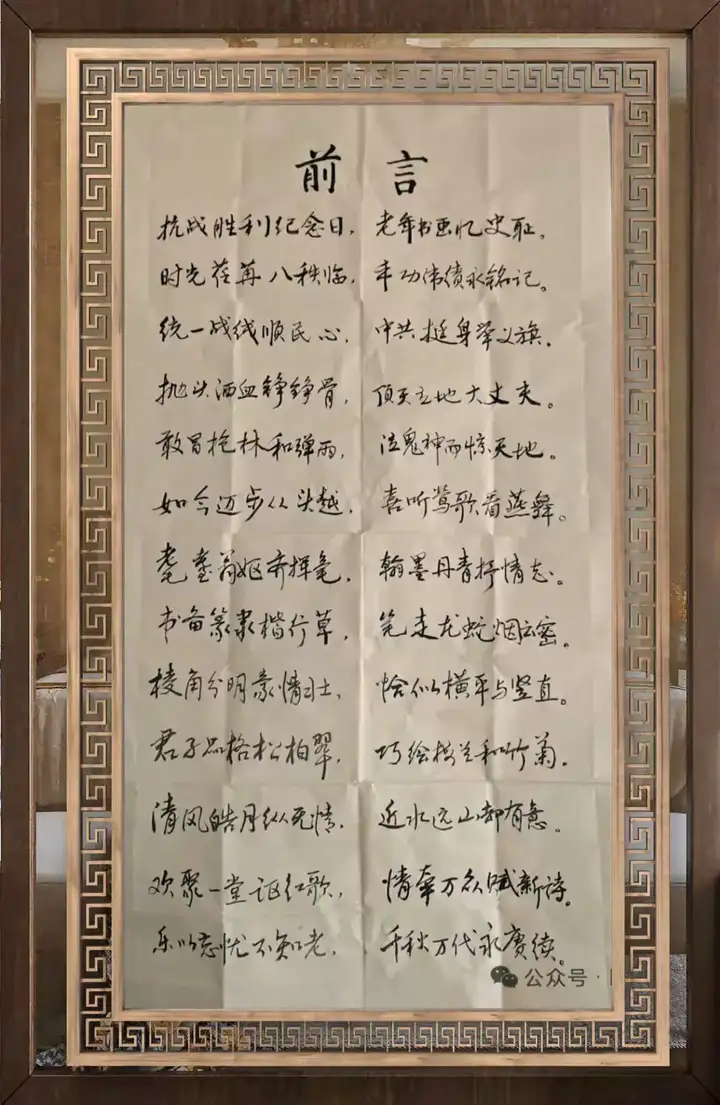 前言
抗战胜利纪念日,老年书画忆史耻。
时光荏苒八秩临,丰功伟绩永铭记。
统一战线顺民心,中共挺身举义旗。
抛头洒血铮铮骨,顶天立地大丈夫。
敢冒枪林和弹雨,泣鬼神而惊天地。
如今迈步从头越,喜听莺歌看燕舞。
耄耋翁妪齐挥毫,翰墨丹青抒情志。
书画篆隶楷行草,笔走龙蛇烟云密。
棱角分明豪情壮,恰似横平与竖直。
君子品格松柏翠,巧绘梅兰和竹菊。
清风皓月纵无情,近水远山都有意。
欢聚一堂讴红歌,情牵万众赋新诗。
乐以忘忧不知老,千秋万代永赓续。
公众号·